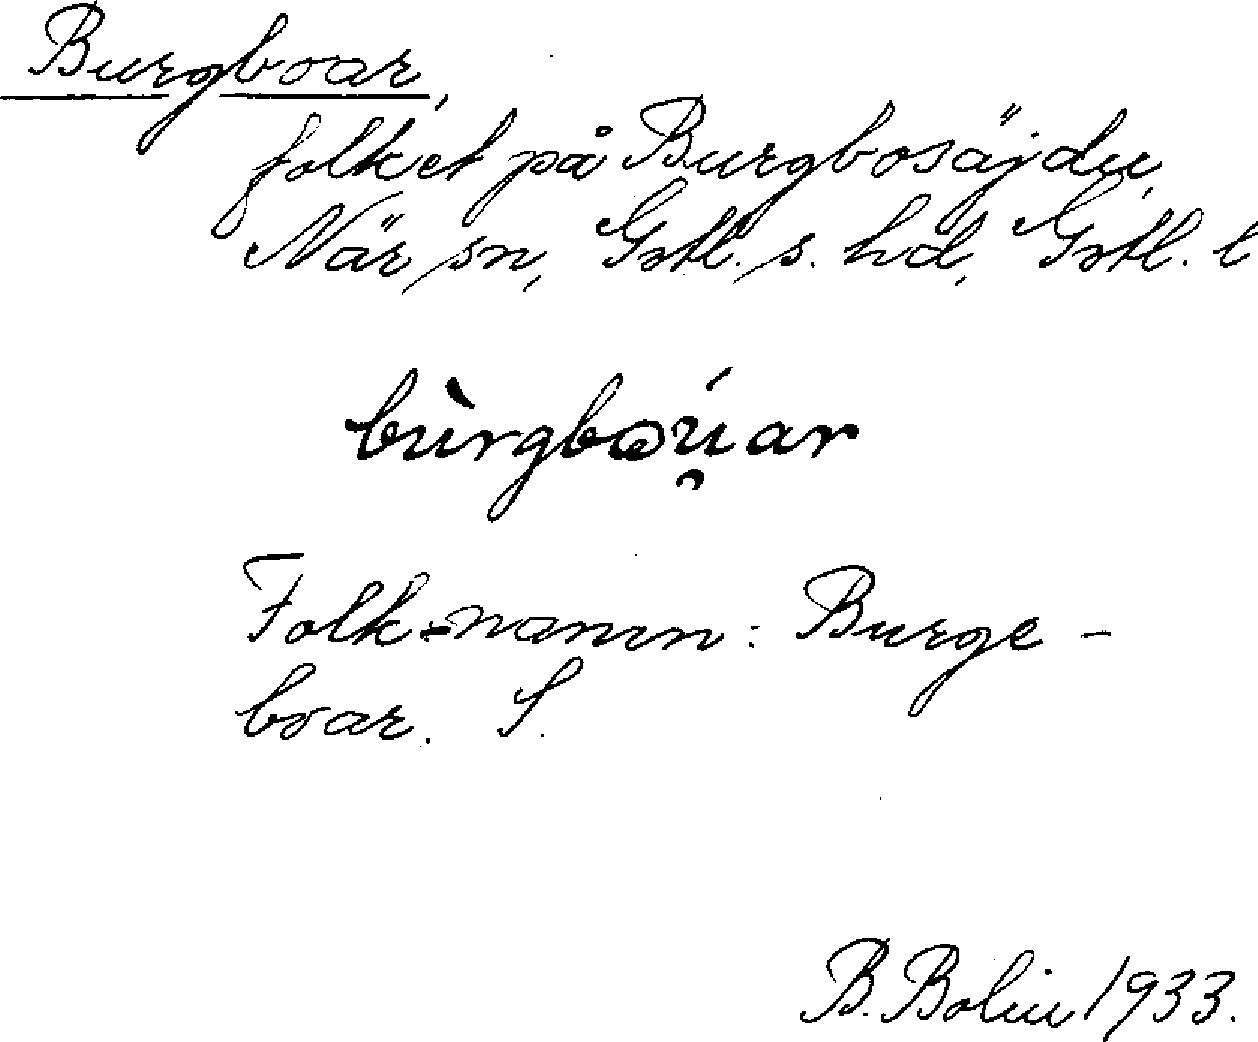 Burgboar,
folket på Burgbosäjdu,
När sn, Gotl. s. hd, Gotl. l
bùrgboúar
Folk-namn: Burge-
boar. S.
B. Bolin 1933.